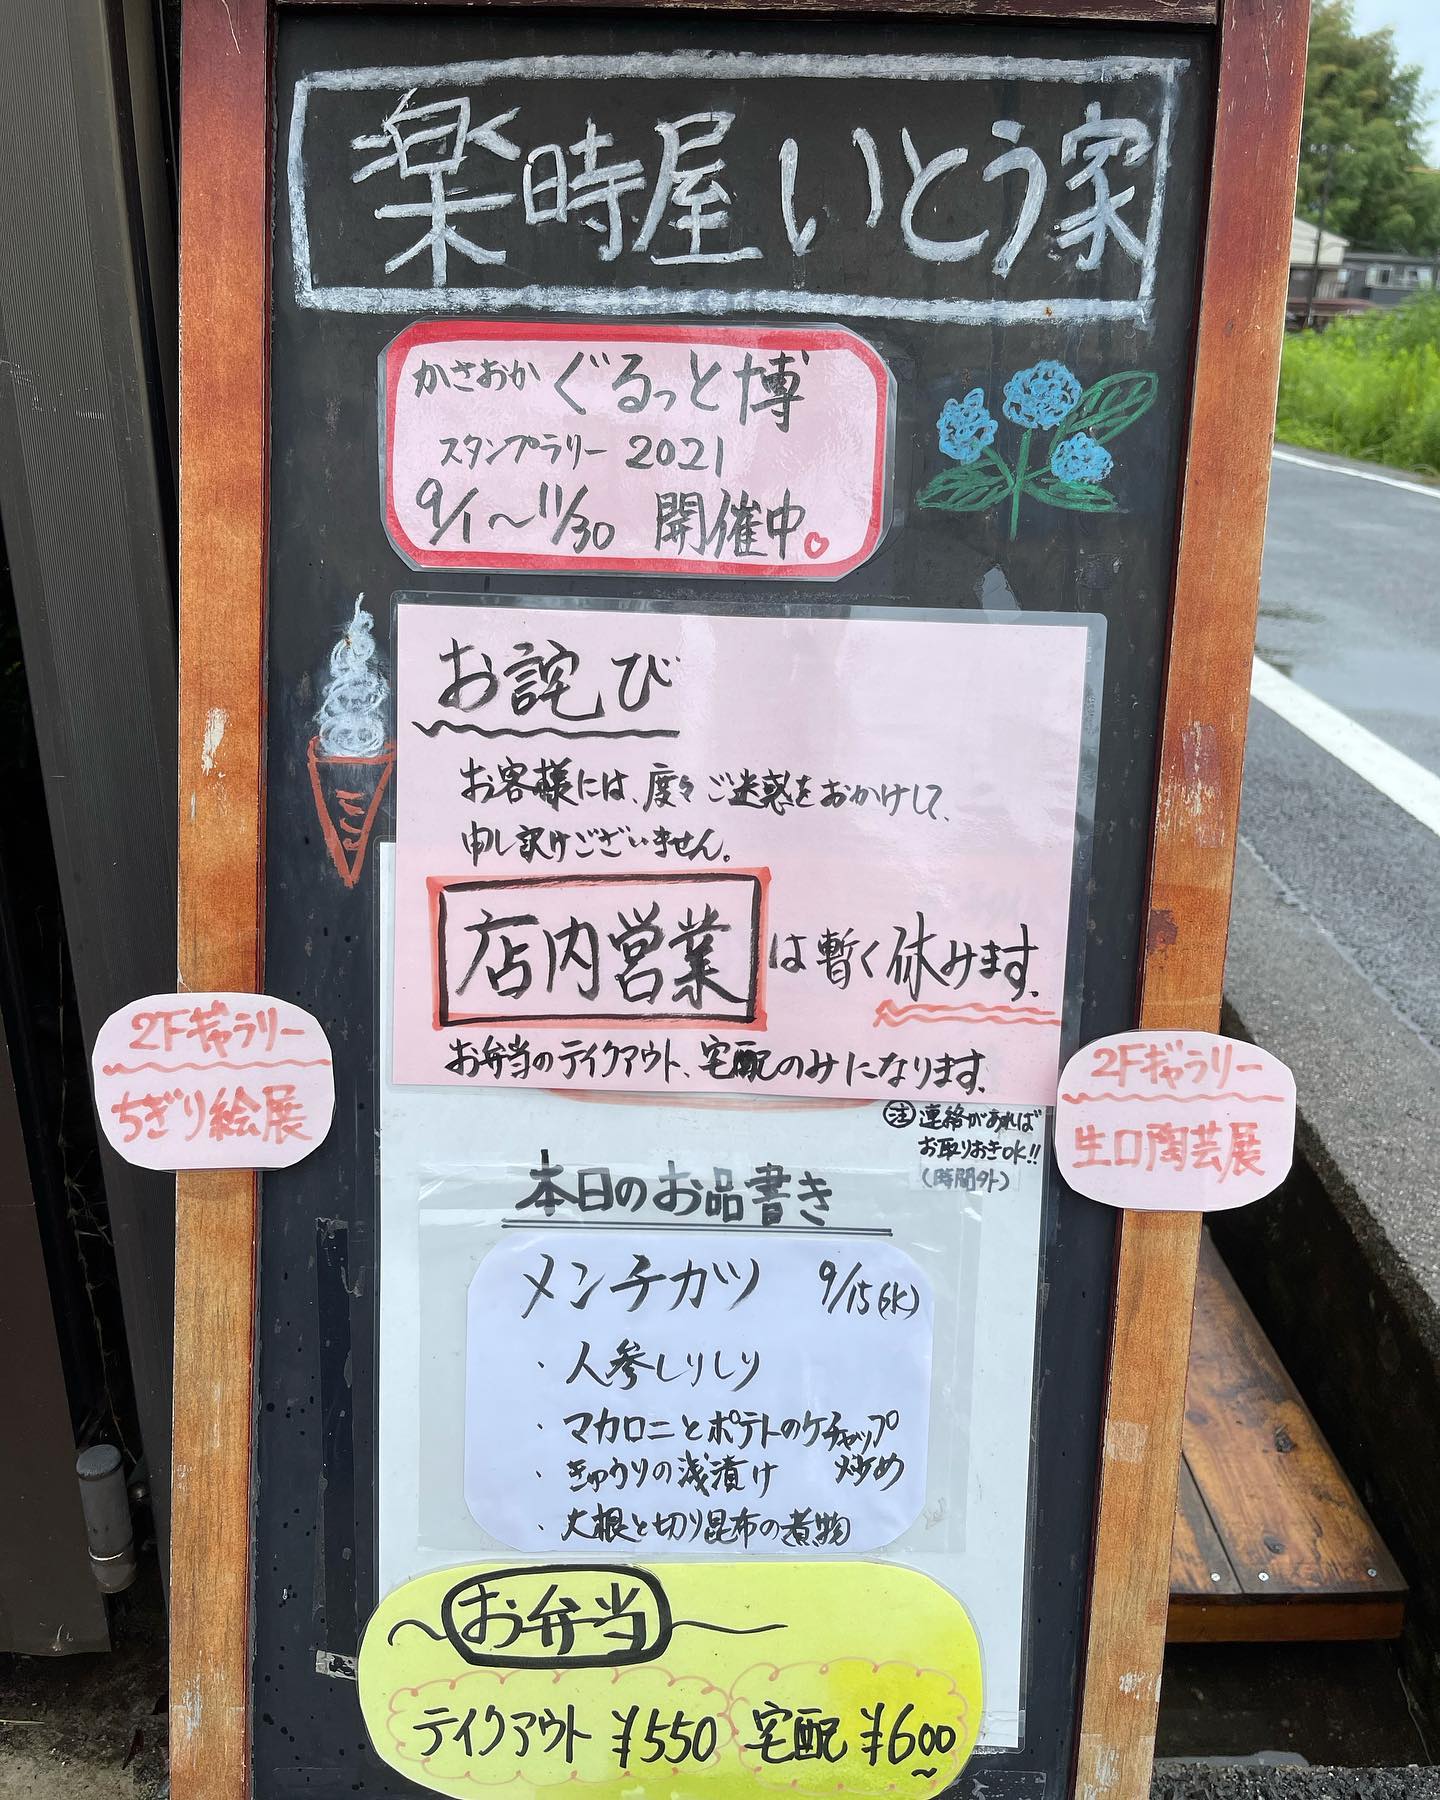 楽時屋いとう家
かさおか ぐるっと博
スタンプラリー 2021
9/1～11/30 開催中。
お詫び
お客様には、度々ご迷惑をおかけして、
申し訳けございません。
店内営業は暫く休みます。
お弁当のテイクアウト、宅配のみになります。
㊟連絡があれば
お取りおきOK!!
(時間外)
2Fギャラリー
ちぎり絵展
2Fギャラリー
生口陶芸展
本日のお品書き
メンチカツ 9/15(水)
・人参しりしり
・マカロニとポテトのケチャップ
炒め
・きゅうりの浅漬け
・大根と切り昆布の煮物
お弁当
テイクアウト ¥550 宅配 ¥600